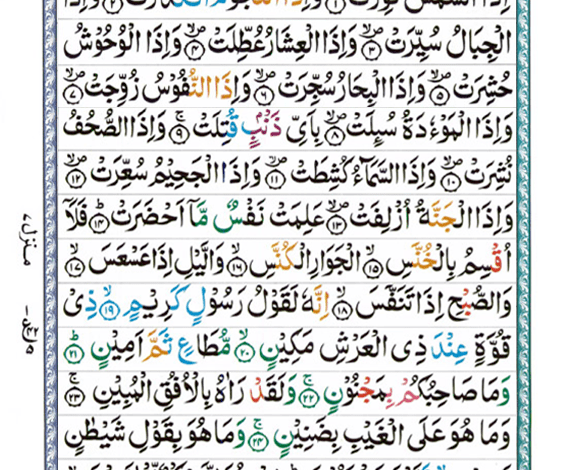 اِذَا الشَّمْسُ كُوِّرَتْ ۝١ وَاِذَا النُّجُوْمُ انْكَدَرَتْ ۝٢ وَاِذَا
الْجِبَالُ سُيِّرَتْ ۝٣ وَاِذَا الْعِشَارُ عُطِّلَتْ ۝٤ وَاِذَا الْوُحُوْشُ
حُشِرَتْ ۝٥ وَاِذَا الْبِحَارُ سُجِّرَتْ ۝٦ وَاِذَا النُّفُوْسُ زُوِّجَتْ ۝٧
وَاِذَا الْمَوْءٗدَةُ سُىِٕلَتْ ۝٨ بِاَىِّ ذَنْۢبٍ قُتِلَتْ ۝٩ وَاِذَا الصُّحُفُ
نُشِرَتْ ۝١٠ وَاِذَا السَّمَآءُ كُشِطَتْ ۝١١ وَاِذَا الْجَحِيْمُ سُعِّرَتْ ۝١٢
وَاِذَا الْجَنَّةُ اُزْلِفَتْ ۝١٣ عَلِمَتْ نَفْسٌ مَّاۤ اَحْضَرَتْ ۝١٤ فَلَاۤ
اُقْسِمُ بِالْخُنَّسِ ۝١٥ الْجَوَارِ الْكُنَّسِ ۝١٦ وَالَّيْلِ اِذَا عَسْعَسَ ۝١٧
وَالصُّبْحِ اِذَا تَنَفَّسَ ۝١٨ اِنَّهٗ لَقَوْلُ رَسُوْلٍ كَرِيْمٍ ۝١٩ ذِىْ
قُوَّةٍ عِنْدَ ذِى الْعَرْشِ مَكِيْنٍ ۝٢٠ مُّطَاعٍ ثَمَّ اَمِيْنٍ ۝٢١
وَمَا صَاحِبُكُمْ بِمَجْنُوْنٍ ۝٢٢ وَلَقَدْ رَاٰهُ بِالْاُفُقِ الْمُبِيْنِ ۝٢٣
وَمَا هُوَ عَلَى الْغَيْبِ بِضَنِيْنٍ ۝٢٤ وَمَا هُوَ بِقَوْلِ شَيْطٰنٍ
منزل ٧